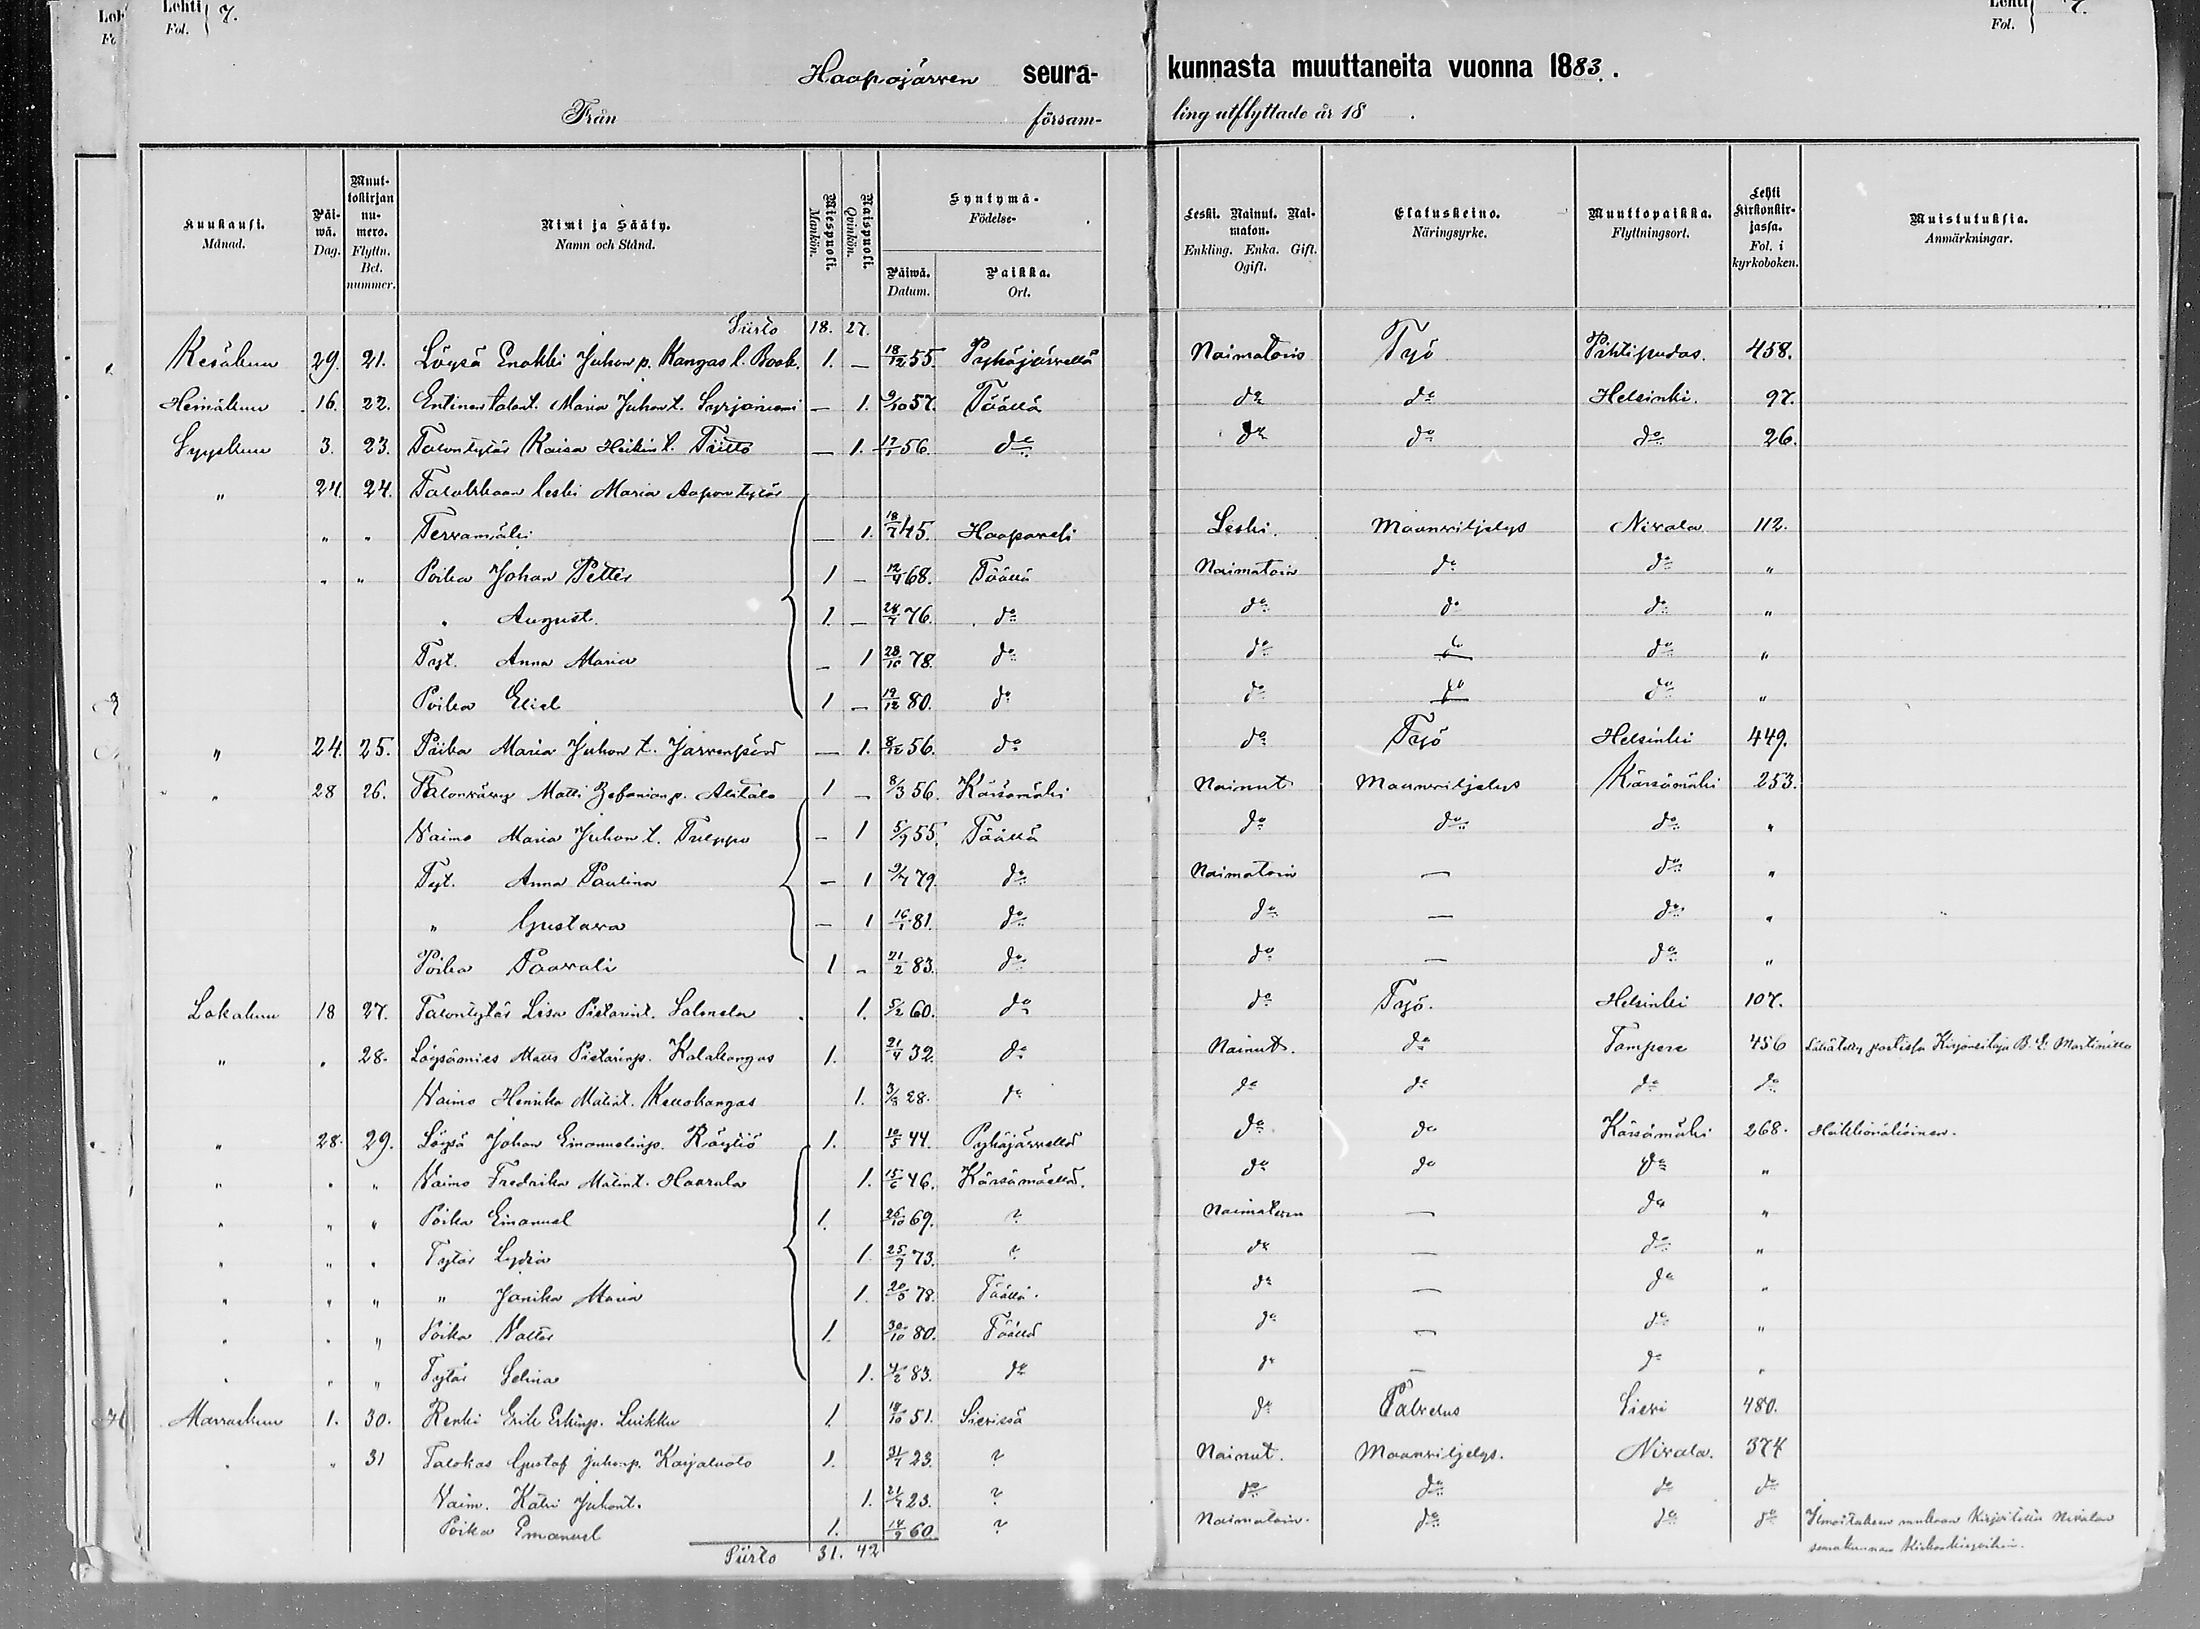 Lehti Fol. 7.
Lehti Fol. 7.
Haapajärven seura-kunnasta muuttaneita vuonna 1883.
Från församling utflyttade år 18 .
Kuukausi. Månad. | Päiwä. Dag. | Muuttokirjan numero. Flyttn. Bet. nummer. | Nimi ja Sääty. Namn och Stånd. | Miespuoli. Mankön. | Waispuoli. Qvinkön. | Syntymä- Födelse- | Päiwä. Datum. | Paikka. Ort. | Leski. Nainut. Naimaton. Enkling. Enka. Gift. Ogift. | Elatuskeino. Näringsyrke. | Muuttopaikka. Flyttningsort. | Lehti kirkonkirjassa. Fol. i kyrkoboken. | Muistutuksia. Anmärkningar.
Siirto 18. 27.
Kesäkuu 29. 21. Löysä Enokki Juhon p. Kangas l. Book. 1. — 18/12 55. Pyhäjärvellä Naimatoin Työ Pihtipudas. 458.
Heinäkuu 16. 22. Entinen talont. Maria Juhon t. Syrjäniemi — 1. 9/10 57. Täällä do do Helsinki. 97.
Syyskuu 3. 23. Talontytär Kaisa Heikin t. Tiitto — 1. 17/1 56. do do do do 26.
" 24 24. Talokkaan leski Maria Aapon tytär
" " Tervamäki — 1. 18/7 45. Haapavesi Leski. Maanviljelys Nivala 112.
" " Poika Johan Petter 1 — 12/4 68. Täällä Naimatoin do do "
" August. 1. — 24/7 76. do do do do "
Tyt. Anna Maria — 1 28/10 78. do do do do "
Poika Eliel 1 — 19/12 80. do do do do "
" 24. 25. Piika Maria Juhon t. Järvenpää — 1. 8/12 56. do do Työ Helsinki 449.
" 28 26. Talonvävy Matti Zefanian p. Alitalo 1 — 8/3 56. Kärsämäki Nainut Maanviljelys Kärsämäki 253.
Vaimo Maria Juhon t. Tulppo — 1 5/9 55. Täällä do do do "
Tyt. Anna Paulina — 1 9/7 79. do Naimatoin — do "
" Gustava — 1 16/1 81. do do — do "
Poika Paavali 1 - 21/2 83. do do — do "
Lokakuu 18 27. Talontytär Lisa Pietarint. Salmela 1. 5/2 60. do do Työ. Helsinki 107.
" " 28. Löysämies Matts Pietarinp. Kalakangas 1. 21/4 32. do Nainut. do Tampere 456
Vaimo Henrika Matint. Kellokangas 1. 3/8 28. do do do do do
" 28. 29. Löysä Johan Emanuelinp. Räytiö 1. 10/5 44. Pyhäjärvellä do do Kärsämäki 268.
" " " Vaimo Fredrika Matint. Haarala 1. 15/6 46. Kärsämäellä. do do do "
" " " Poika Emanuel 1. 26/10 69. ? Naimatoin — do "
" " " Tytär Lydia 1. 25/9 73. ? do — do "
" " " " Janika Maria 1. 20/5 78. Täällä. do — do "
" " " Poika Valter 1. 30/10 80. Täällä do — do "
" " " Tytär Selina 1. 4/2 83. do do — do "
Marraskuu 1. 30. Renki Erik Erkinp. Luikku 1. 18/10 51. Sievissä do Palvelus Sievi 480.
" " 31 Talokas Gustaf Juhonp. Karjaluoto 1. 31/7 23. ? Nainut. Maanviljelys. Nivala. 374
Vaim. Katri Juhont. 1. 21/4 23. ? do do do do
Poika Emanuel 1. 14/9 60. ? Naimatoin. do do do Ilmoituksen mukaan Nivalan
seurakunnan
Siirto 31. 42